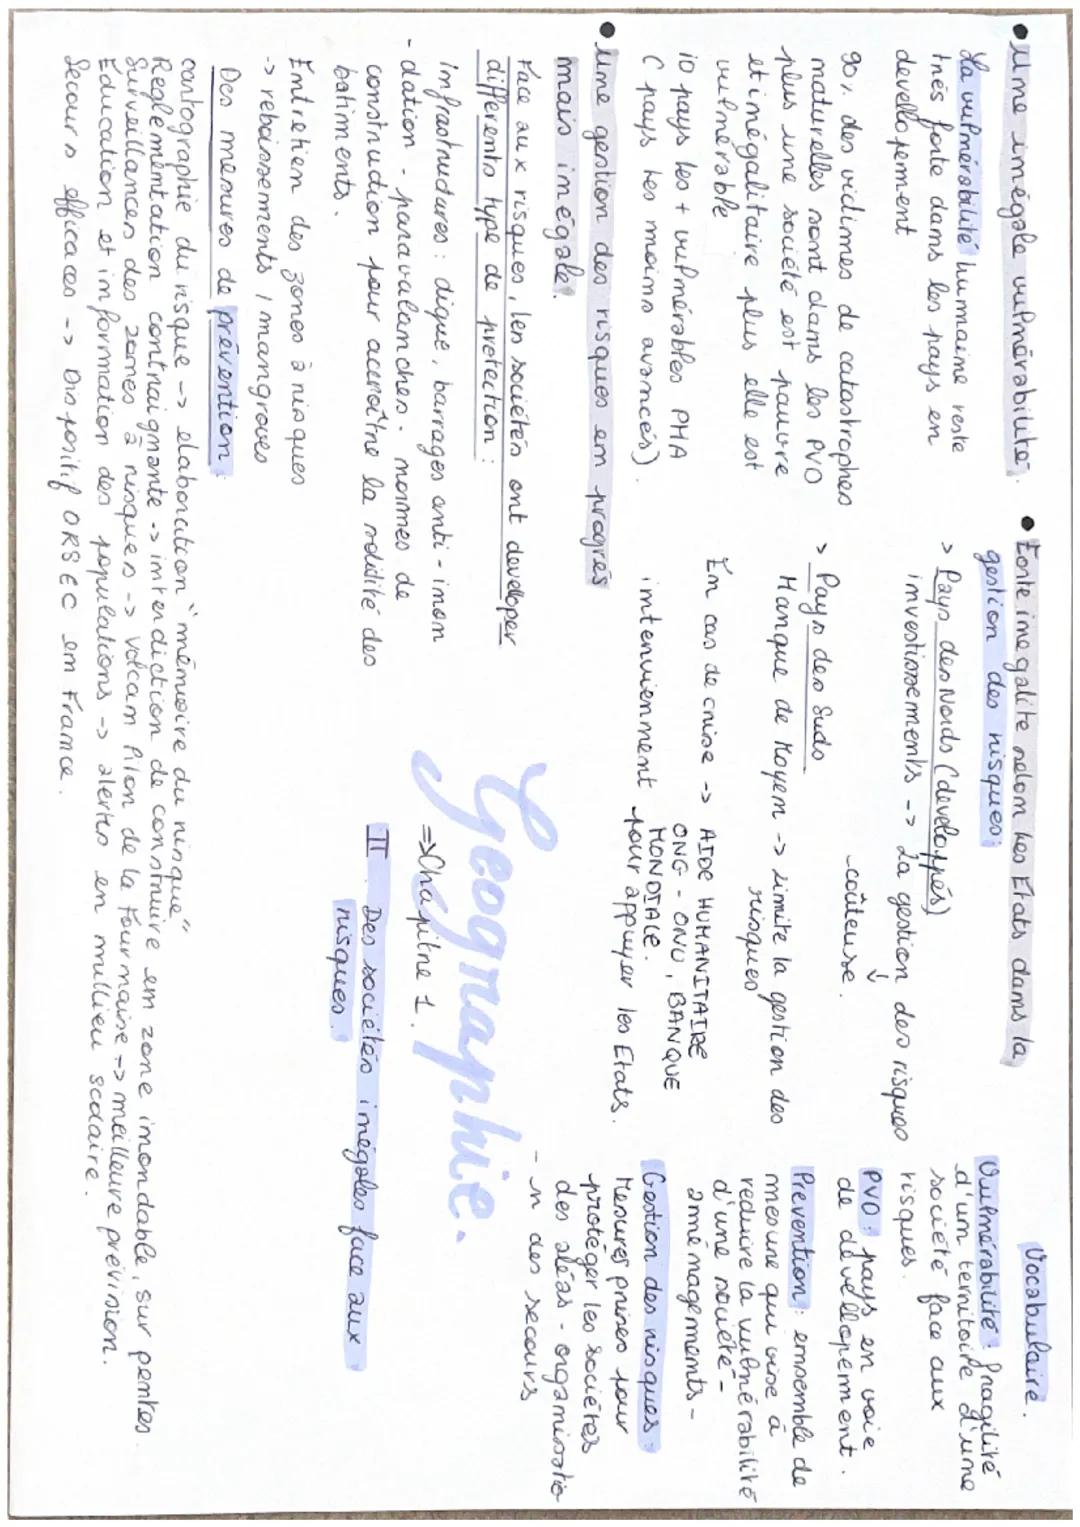 • Une inégale vulnérabilité.
La vulnérabilité humaine reste
très forte dans les pays en
developement
90% des victimes de catastrophes
naturelles sont dans les PVO
plus une société est pauvre
et inégalitaire plus elle est
vulnérable
10 pays les + vulnérables PHA
( pays les moins avancés).
• Une gestion des risques en progrès
mais inégale.
Face aux risques, les sociétés ont developer
différents type de protection :
infrastructures : digue, barrages anti-inon
-dation - paravalanches - normes de
construction pour accroître la solidité des
batiments.
Entretien des zones à risques
-> reboissements / mangroves
Des mesures de prévention :
cartographie du risque -> elaboration "mémoire du risque"
Reglémentation contraignante -> interdiction de construire en zone inondable, sur pentes.
Surveillances des zones à risques -> volcan Piton de la Fournaise -> meilleure prévision.
Éducation et information des populations -> alertes en millieu scolaire.
Secours efficaces -> Dispositif ORSEC en France.
• Forte inegalite selon les Etats dans la
gestion des risques :
> Pays des Nords (developpés)
investissements -> La gestion des risques
-coûteuse.
> Pays des Suds
Manque de Moyen -> Limite la gestion des
risques
En cas de crise -> AIDE HUMANITAIRE
ONG - ONU, BANQUE
MONDIALE.
interviennent pour appuyer les Etats.
Geographie.
=> Chapitre 1.
II. Des sociétés inégales face aux
risques.
Vocabulaire.
Vulnérabilité : fragilité
d'un territoire d'une
société face aux
risques.
PVO : pays en voie
de dévellopement.
Prevention : ensemble de
mesure qui vise à
reduire la vulnérabilité
d'une société -
aménagements -
Gestion des risques :
Mesures prises pour
protéger les sociétés
des aléas - organisatio
-n des secours